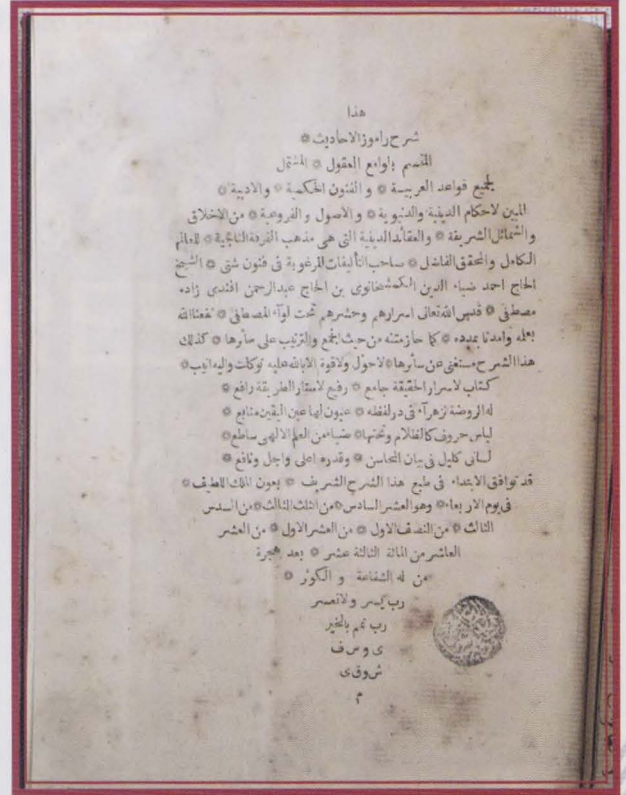 هذا
شرح راموز الاحاديث *
المتسم بلوامع العقول * المشتمل
لجميع قواعد العربيسة * و الفنون الحكمية * والادبية *
المبين لاحكام الدينية والدنيوية * والاصول و الفروعية * من الاخلاق
و الشمائل الشريفة * والعقائد الدينية التى هى مذهب الفرقة الناجية * للعالم
الكامل والمحقق الفاضل * صاحب التأليفات المرغوبة فى فنون شتى * الشيخ
الحاج احمد ضياء الدين الكمشخانوى بن الحاج عبدالرحمن افندى زاده
مصطفى * قدس الله تعالى اسرارهم وحشرهم تحت لوآء المصطفى * نفعنا الله
بعلمه وامدنا بمدده * كما حاز متنه من حيث الجمع والترتيب على سائرها * كذلك
هذا الشرح مستغنى عن سائرها * لاحول ولاقوة الابالله عليه توكلت واليه انيب *
كتاب لاسرار الحقيقة جامع * رفيع لاستار الطريقة رافع *
له الروضة زهرآء فى در لفظه * عيون لها عين اليقين منابع *
لباس حروف كالظلام وتحتها * ضياء من العلم الالهى ساطع *
لسانى كليل فى بيان المحاسن * وقدره اعلى واجل ونافع *
قد توافق الابتداء فى طبع هذا الشرح الشريف * بعون الملك اللطيف *
فى يوم الاربعاء * وهو العشر السادس * من الثلث الثالث * من السدس
الثالث * من النصف الاول * من العشر الاول * من العشر
العاشر من المائة الثالثة عشر * بعد هجرة
من له الشفاعة و الكوثر *
رب يسر ولا تعسر
رب تمم بالخير
ى و س ف
ش و ق ى
م